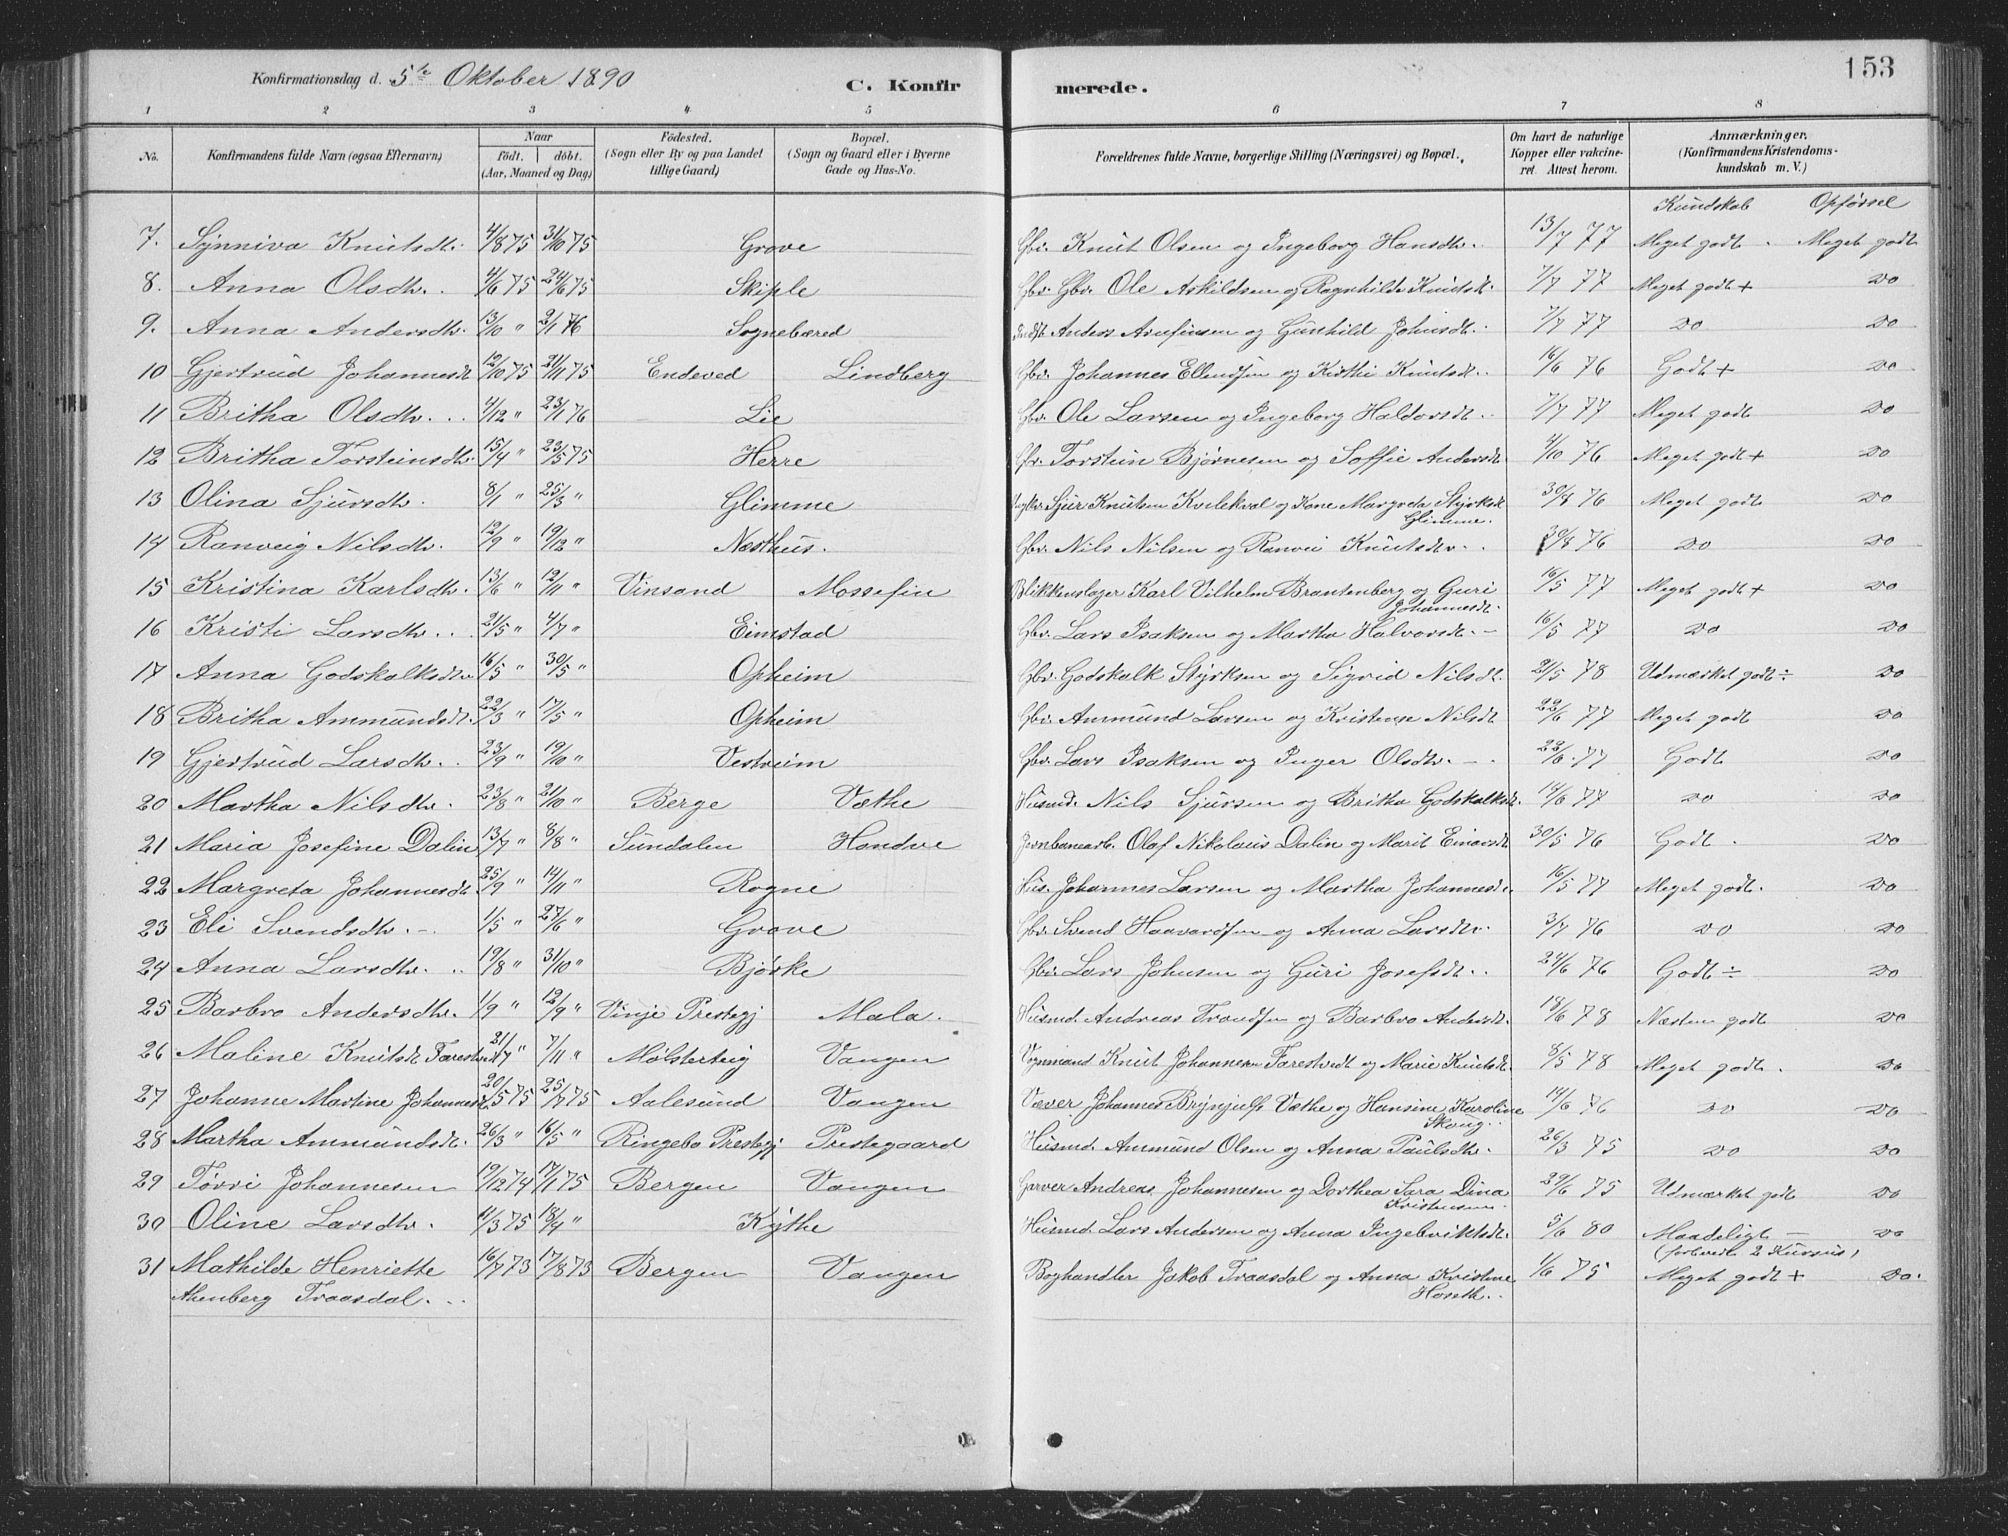 153
Konfirmationsdag d. 5te Oktober 1890
C. Konfirmerede.
1 2 3 4 5 6 7 8
No. Konfirmandens fulde Navn (ogsaa Efternavn) Naar født. døbt. (Aar, Maaned og Dag) Fødested. (Sogn eller By og paa Landet tillige Gaard) Bopæl. (Sogn og Gaard eller i Byerne Gade og Hus-No. Forældrenes fulde Navne, borgerlige Stilling (Næringsvei) og Bopæl. Om havt de naturlige Kopper eller vakcineret. Attest herom. Anmærkninger. (Konfirmandens Kristendomskundskab m. V.)
Kundskab Opførsel
7. Synniva Knutsdtr. 4/8 75 31/10 75 Grove Gbr. Knut Olsen og Ingeborg Hansdtr. 13/7 77 Meget godt. Meget godt
8. Anna Olsdtr. 4/6 75 24/6 75 Skiple Gbr. Gbr. Ole Askildsen og Ragnhilde Knutsdt. 7/7 77 Meget godt + Do
9. Anna Andersdtr. 13/10 " 2/1 76 Sognebæred Anders Arnfinsen og Gunhild Johnsdt. 7/7 77 Do Do
10 Gjertrud Johannesdt 12/10 75 21/11 75 Endeved Lindberg Gbr. Johannes Ellendsen og Kirthi Knutsdt. 16/6 76 Godt + Do
11 Britha Olsdtr. 4/12 " 23/1 76 Lie Gbr. Ole Larsen og Ingeborg Haldorsdt. 7/7 77 Meget godt Do
12 Britha Torsteinsdtr. 15/4 " 23/5 75 Herre Gbr. Torstein Bjørnesen og Soffie Andersdt. 4/10 76 Meget godt + Do
13 Olina Sjursdtr. 8/1 " 25/3 " Glimme Sjur Knutsen Kvilekval og Kone Margreta Styrksdt. Glimme. 30/8 76 Meget godt Do
14 Ranveig Nilsdtr. 12/9 " 19/12 " Næsthus. Gbr. Nils Nilsen og Ranvei Knutsdtr. 30/8 76 Do Do
15 Kristina Karlsdtr. 13/6 " 12/11 " Vinsand Mossefin Blikkenslager Karl Vilhelm Brantenberg og Guri Johannesdt. 16/5 77 Meget godt + Do
16 Kristi Larsdtr. 21/5 " 4/7 " Eimstad Gbr. Lars Isaksen og Martha Halvorsdt. 16/5 77 Do Do
17 Anna Godskalksdtr. 16/5 " 30/5 " Opheim Gbr. Godskalk Styrksen og Sigrid Nilsdt. 21/5 78 Udmærket godt ÷ Do
18 Britha Ammundsdt. 22/3 " 17/5 " Opheim Gbr. Ammund Larsen og Kristense Nilsdt 22/6 77 Meget godt Do
19 Gjertrud Larsdtr. 23/9 " 19/10 " Vestreim Gbr. Lars Isaksen og Inger Olsdtr. 22/6 77 Godt Do
20 Martha Nilsdtr. 23/8 " 21/10 " Berge Væthe Husmd. Nils Sjursen og Britha Godskalksdt. 18/6 77 Do Do
21 Maria Josefine Dalin 13/7 " 8/8 " Sundalen Handve Jernbanearb. Olaf Nikolaus Dalin og Marit Einarsdt 30/5 76 Godt. Do
22 Margreta Johannesdt. 25/9 " 14/11 " Rogne Hus. Johannes Larsen og Martha Johannesdt. 16/5 77 Meget godt. Do
23 Eli Svendsdtr. 1/5 " 27/6 " Grove Gbr. Svend Haavardsen og Anna Larsdtr. 3/7 76 Do Do
24 Anna Larsdtr. 19/8 " 31/10 " Bjørke Gbr. Lars Johnsen og Guri Josefsdt. 24/6 76 Godt ÷ Do
25 Barbro Andersdtr. 1/9 " 12/9 " Vinje Prestegj Mala. Husmd. Andreas Trondsen og Barbro Andersdt. 18/6 78 Næsten godt Do
26 Maline Knutsdt. Farestvedt 21/7 " 7/11 " Mølsterteig Vangen Vognmand Knut Johannesen Farestvedt og Marie Knutsdt. 8/5 78 Meget godt. Do
27 Johanne Martine Johannesdt. 20/5 75 25/7 75 Aalesund Vangen Væver Johannes Brynjulfs. Væthe og Hansine Karoline Skoug. 14/6 76 Do Do
28 Martha Ammundsdt. 26/3 " 16/5 " Ringebo Prestegj Prestegaard Husmd. Ammund Olsen og Anna Paulsdtr. 26/3 75 Do Do
29 Tørri Johannesen 19/12 74 17/1 75 Bergen Vangen Garver Andreas Johannesen og Dorthea Sara Dina Kristensen. 29/6 75 Udmærket godt Do
30 Oline Larsdtr. 11/3 75 18/4 " Kythe Husmd. Lars Andersen og Anna Ingebriktsdt. 5/6 80 Maadeligt — (forbedr. 2 Kursus) Do
31 Mathilde Henriette 16/7 73 17/8 73 Bergen Vangen Boghandler Jakob Traasdal og Anna Kristine Haseth. 1/6 75 Meget godt + Do.
Akenberg Traasdal.